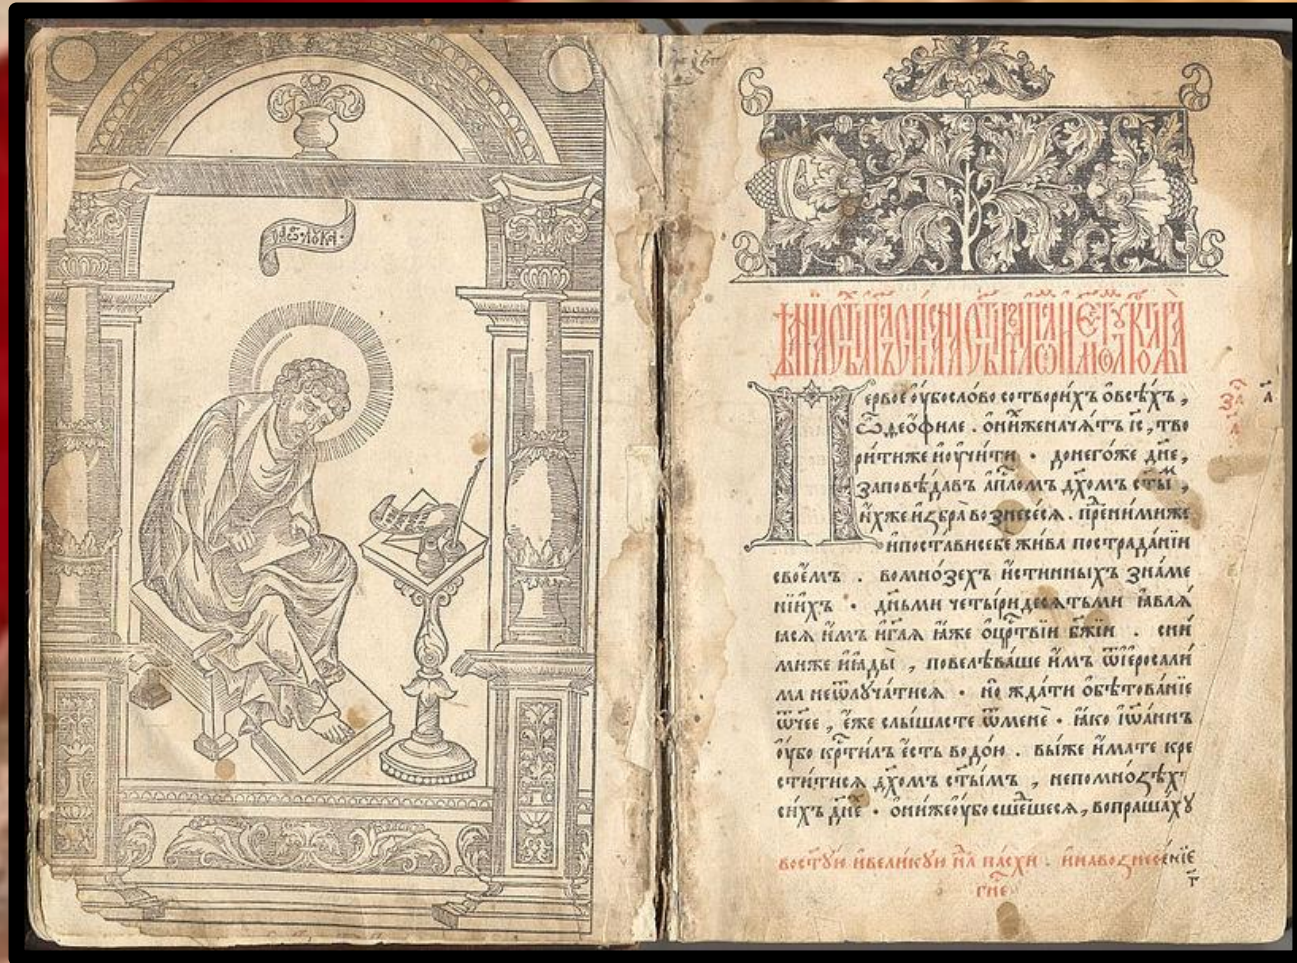 лука
Первое оу҆бо сло́во сотвори́хъ ѡ҆ всѣ́хъ,
ѽ део́филе. ѻ҆ ни́хже нача́тъ і҆с, тво
ри́ти же и҆ оу҆чи́ти. до него́же дн҃е,
заповѣ́давъ а҆пⷭ҇ломъ дх҃омъ ст҃ы́м,
и҆́хже и҆збра̀ вознесе́сѧ. пре́д ни́миже
и҆ поста́ви себѐ жи́ва по страда́нїи
свое́мъ. во мно́зехъ и҆́стинныхъ зна́ме
нїи҆хъ. дньми четы́ридесѧтьми ꙗ҆влѧ́
ꙗсѧ и҆̀мъ и҆ гл҃ѧ ꙗ҆́же ѡ҆ црⷭ҇твїи бж҃їи. сни́
миже и҆ ꙗ҆ды̀, повелѣва́ше и҆̀мъ ѿ і҆еросали́
ма не ѿлꙋча́тисѧ. но жда́ти ѡ҆бѣтова́нїе
ѻ҆́ч҃ее, є҆́же слы́шасте ѿ менѐ. ꙗ҆́ко і҆ѡа́ннъ
оу҆́бо крⷭ҇ти́лъ є҆́сть водо́ю. вы́же и҆́мате кре
сти́тисѧ дх҃омъ ст҃ы́мъ, не по мно́зѣхъ
си́хъ дн҃е. ѻ҆ни́же оу҆́бо сше́дшесѧ, вопраша́хꙋ
во ст҃ꙋ́ю и҆ вели́кꙋю нл҃ю па́схи. и҆ на вознесе́нїе
гн҃е